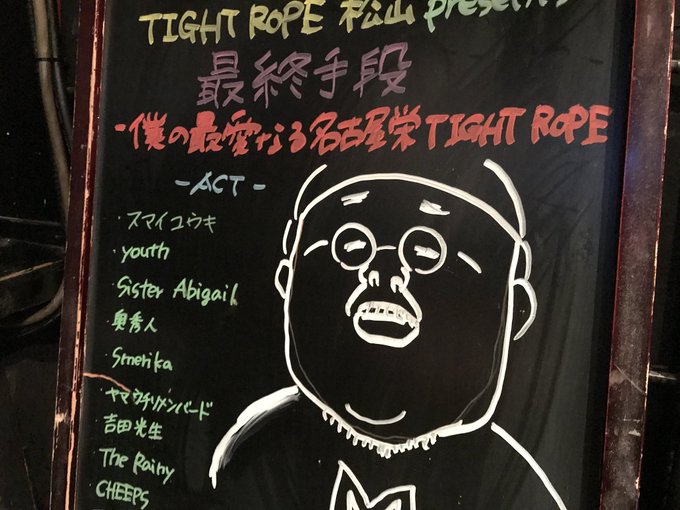 TIGHT ROPE 松山 presents
最終手段
-僕の最愛なる名古屋栄TIGHT ROPE
-ACT-
・スマイユウキ
・youth
・Sister Abigail
・奥秀人
・Smerika
・ヤマウチリメンバード
・吉田光生
・The Rainy
・CHEEPS